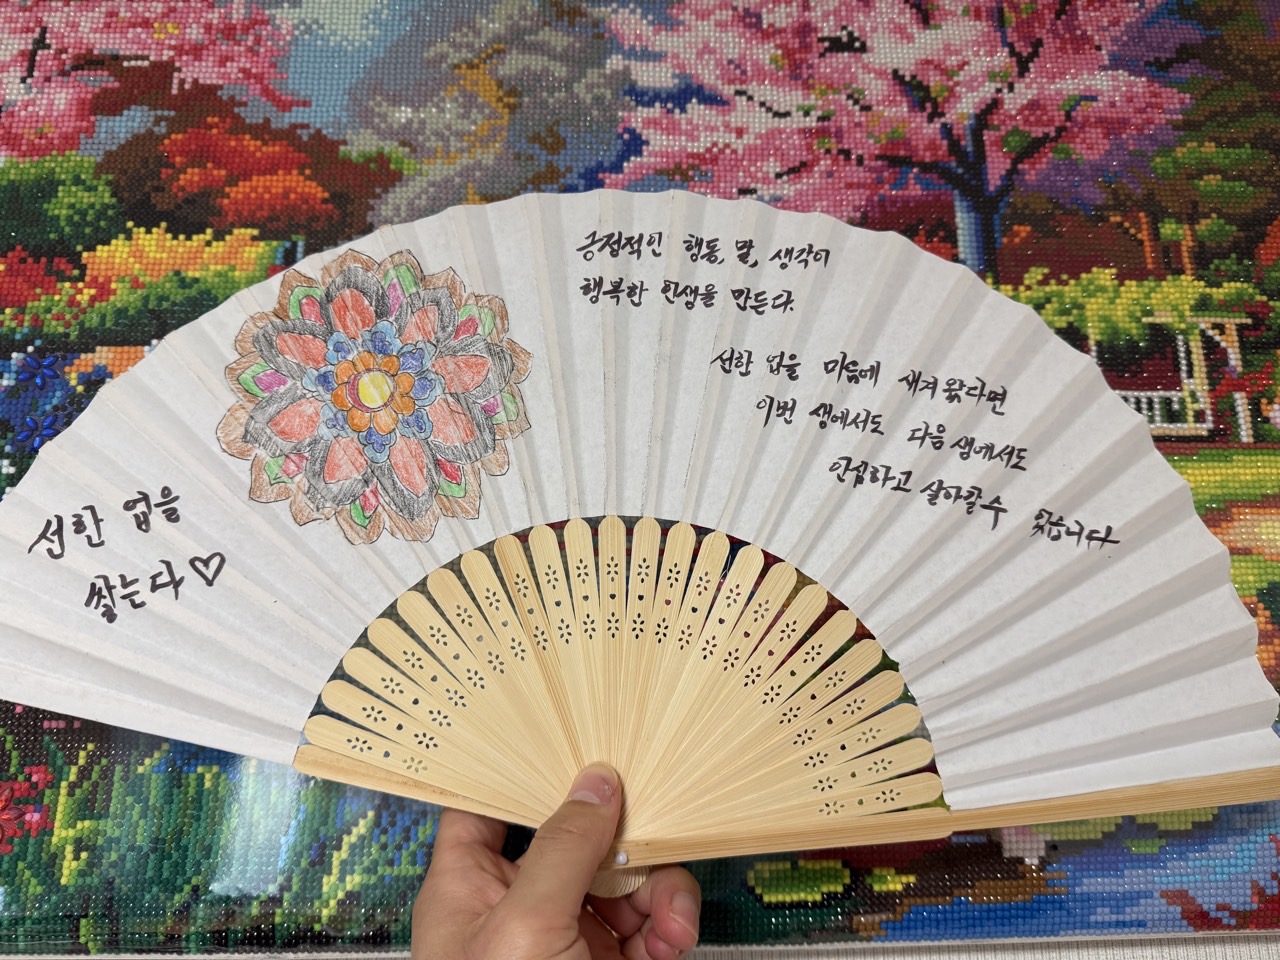 긍정적인 행동, 말, 생각이
행복한 인생을 만든다.
선한 업을 마음에 새겨 왔다면
이번 생에서도 다음 생에서도
안심하고 살아갈 수 있습니다.
선한 업을
쌓는다♡